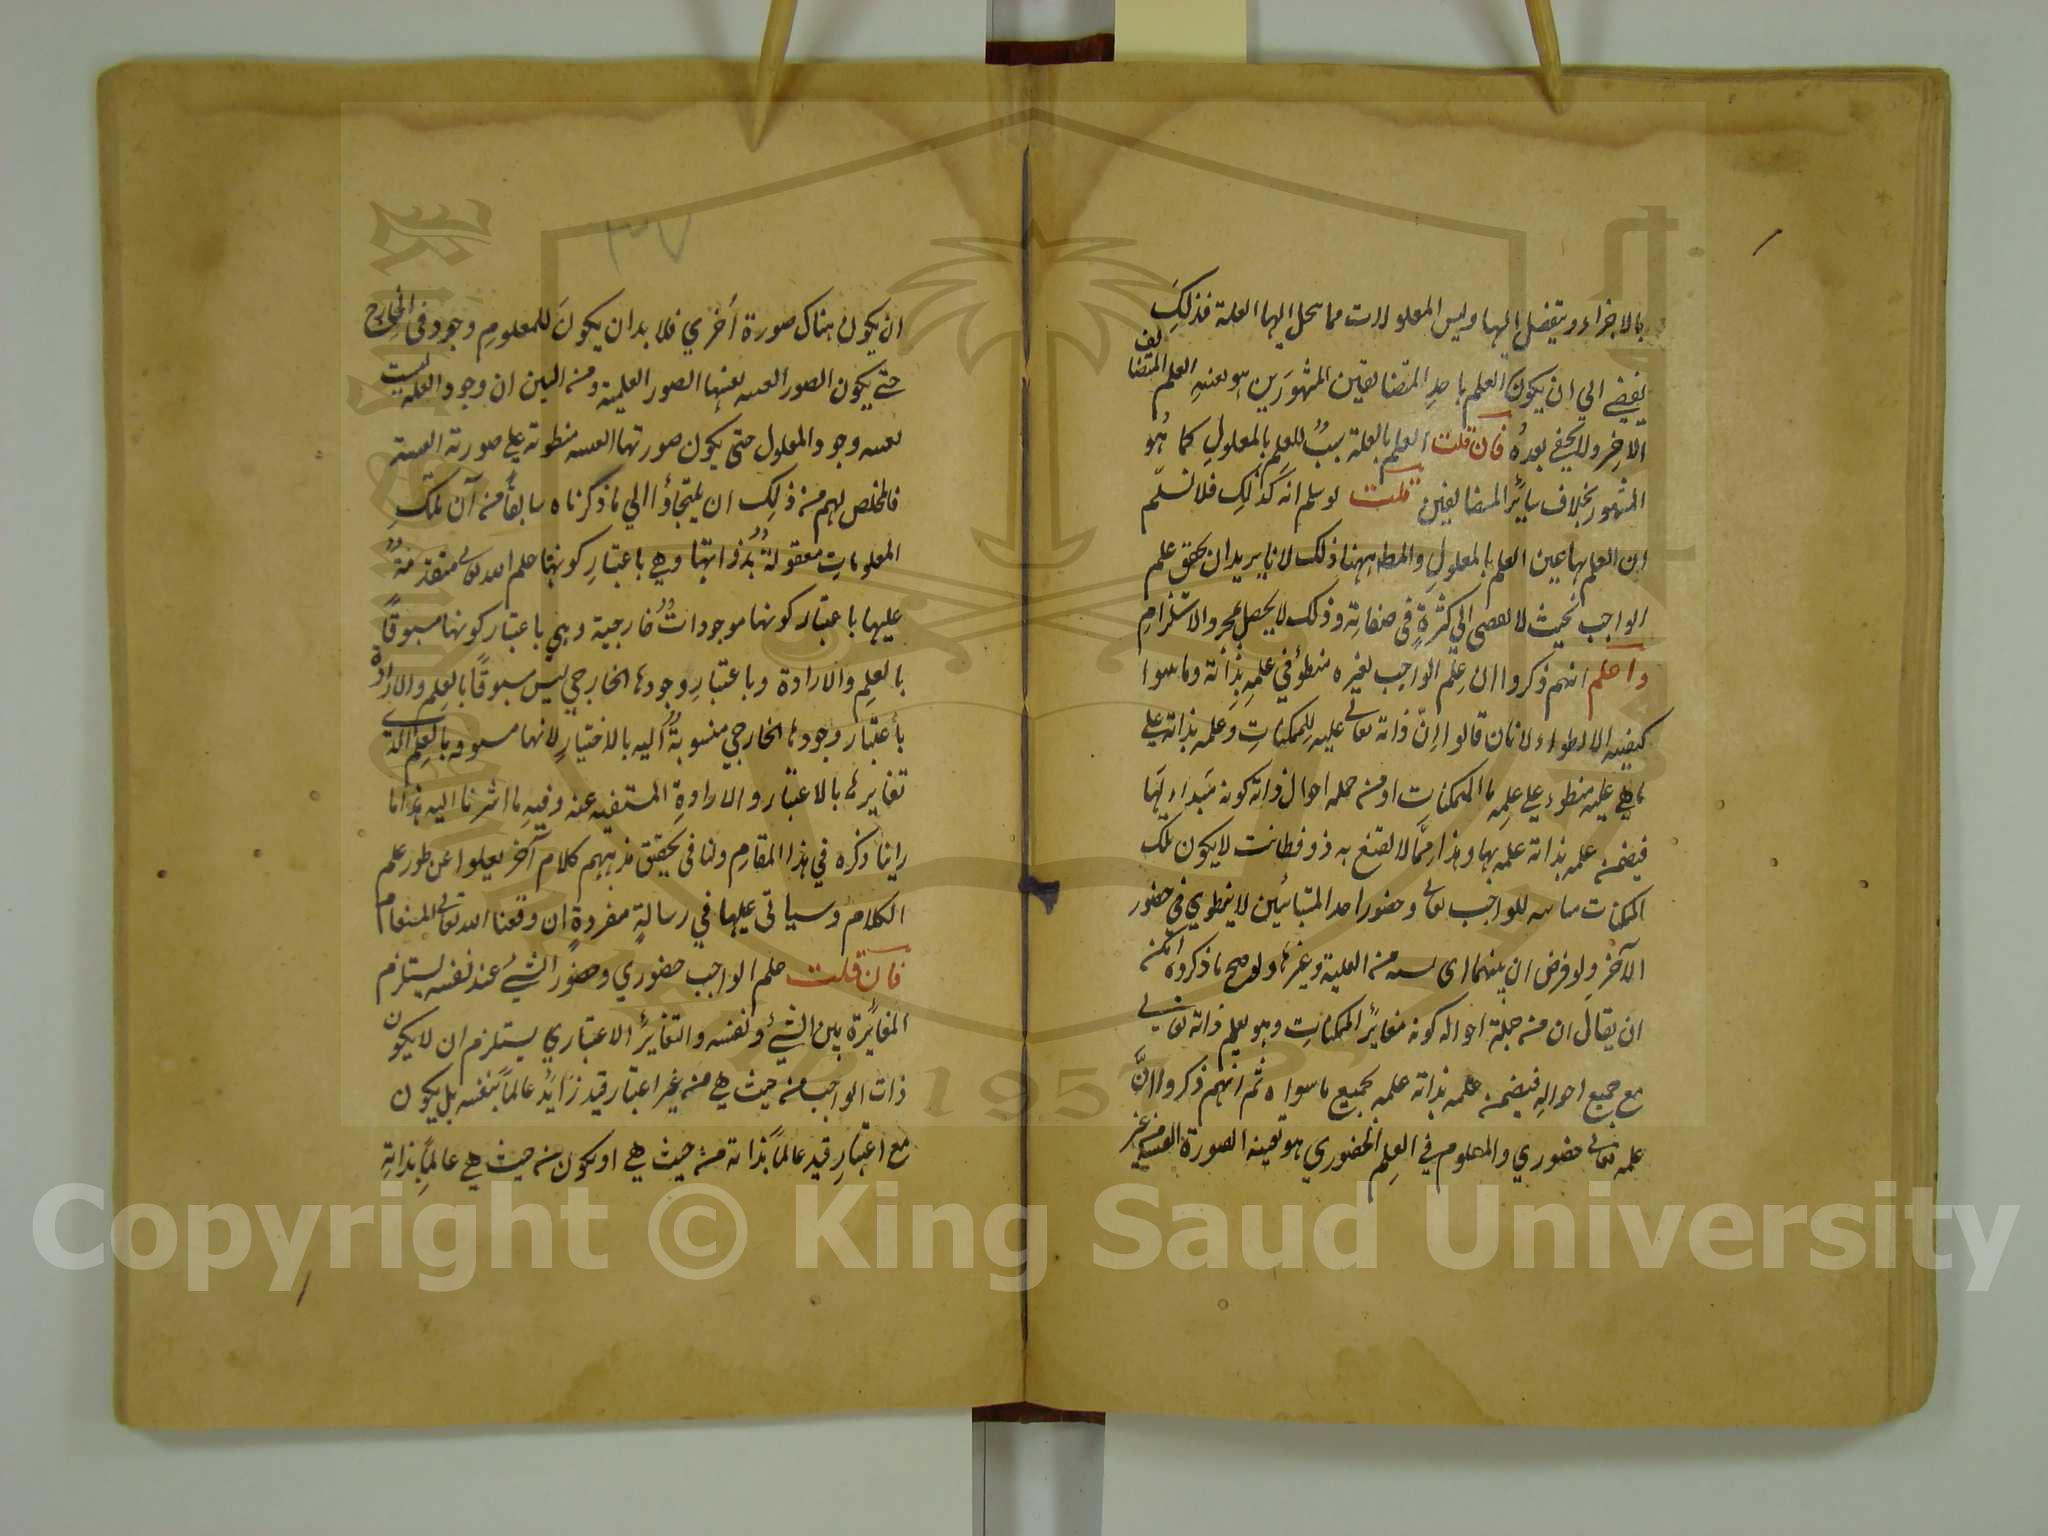 بالاجزاء وينفصل اليها وليس المعلولات مما ينحل اليها العلة فذلك
يفضي الي ان يكون العلم باحد المتضايفين المشهورين هو بعينه العلم المتضايف
الاخر ولا يخفي بعده فان قلت العلم بالعلة سبب للعلم بالمعلول كما هو
المشهور بخلاف سائر المتضايفين قلت لو سلم انه كذلك فلا نسلم
ان العلم بها عين العلم بالمعلول والمط ههنا ذلك لانا نريد ان نحقق علم
الواجب بحيث لا يفضي الي كثرة في صفاته وذلك لا يحصل بمجرد الاستلزام
واعلم انهم ذكروا ان علم الواجب لغيره منطوٍ في علمه بذاته وما سوا
كيفية الانطواء لانا ان قالوا ان ذاته تعالى علية للممكنات وعلمه بذاته علي
ما هي عليه منطوٍ علي علمه بالممكنات او من جملة احوال ذاته كونه مبداء لها
فيضمن علمه بذاته علمه بها وهذا مما لا يقنع به ذو فطانت لا يكون تلك
الممكنات مباينة للواجب تعالى وحضور احد المتباينين لا ينطوي في حضور
الآخر ولو فرض ان بينهما اي نسبة من العلية وغيرها ولو صح ما ذكروه امكن
ان يقال ان من جملة احواله كونه مغاير الممكنات وهو يعلم ذاته تعالى
مع جميع احواله فيضمن علمه بذاته علمه بجميع ما سواه ثم انهم ذكروا ان
علمه تعالى حضوري والمعلوم في العلم الحضوري هو بعينه الصورة العينية من غير
٣٧
ان يكون هناك صورة أخري فلا بد ان يكون للمعلوم وجود في الخارج
حتي يكون الصور العينية بعينها الصور العلمية ومن البين ان وجود العلة ليست
بعينه وجود المعلول حتى يكون صورتها العينية منطوية علي صورته العينية
فالمخلص لهم من ذلك ان يلتجأوا الي ما ذكرناه سابقاً من آن تلك
المعلومات معقولة بذواتها وهي باعتبار كونها علم الله تعالى متقدمة
عليها باعتبار كونها موجودات خارجية وهي باعتبار كونها مسبوقاً
بالعلم والارادة وباعتبار وجودها الخارجي ليس مسبوقاً بالعلم والارادة
باعتبار وجودها الخارجي منسوبة اليه بالاختيار لانها مسبوقه بالعلم الذي
تغايرها بالاعتبار والارادة المنتفيه عنه وفيه ما اشرنا اليه هذا ما
راينا ذكره في هذا المقام ولنا في تحقيق مذهبهم كلام آخر يعلوا عن طور علم
الكلام وسياتي عليها في رسالة مفردة ان وفقنا الله تعالى المنعام
فان قلت علم الواجب حضوري وحضور الشيء عند نفسه يستلزم
المغائرة بين الشيء ونفسه والتغاير الاعتباري يستلزم ان لا يكون
ذات الواجب من حيث هي من غير اعتبار قيد زايد عالماً بنفسه بل يكون
مع اعتبار قيد عالماً بذاته من حيث هي او يكون من حيث هي عالم بذاته
Copyright © King Saud University
1957